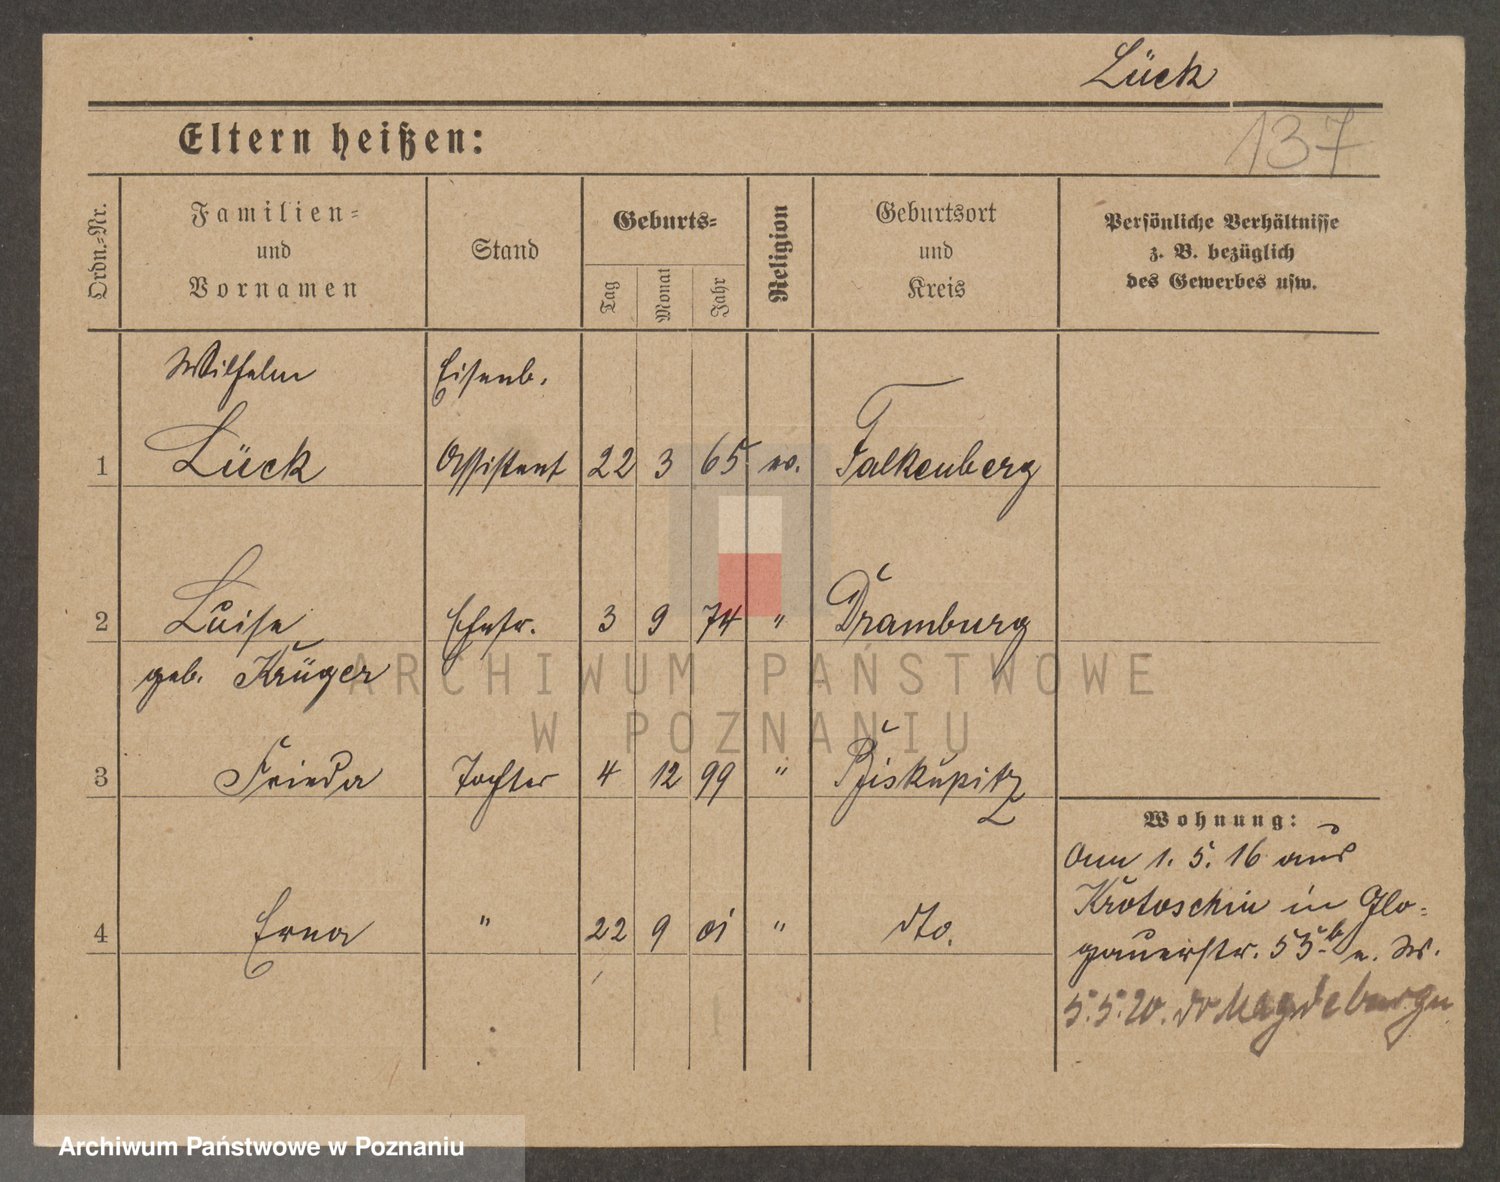 Lück
137
Eltern heißen:
Ordn.-Nr.
Familien-
und
Vornamen
Stand
Geburts-
Tag
Monat
Jahr
Religion
Geburtsort
und
Kreis
Persönliche Verhältnisse
z. B. bezüglich
des Gewerbes usw.
Wilhelm Eisenb.
1 Lück Assistent 22 3 65 ev. Falkenberg
2 Luise Ehefr. 3 9 74 " Dramburg
geb. Krüger
3 Frieda Tochter 4 12 99 " Biskupitz
4 Erna " 22 9 01 " dto.
Wohnung:
Am 1. 5. 16 aus
Krotoschin in Glo-
gauerstr. 53 b
5.5.20. Magdeburg
ARCHIWUM PAŃSTWOWE
W POZNANIU
Archiwum Państwowe w Poznaniu